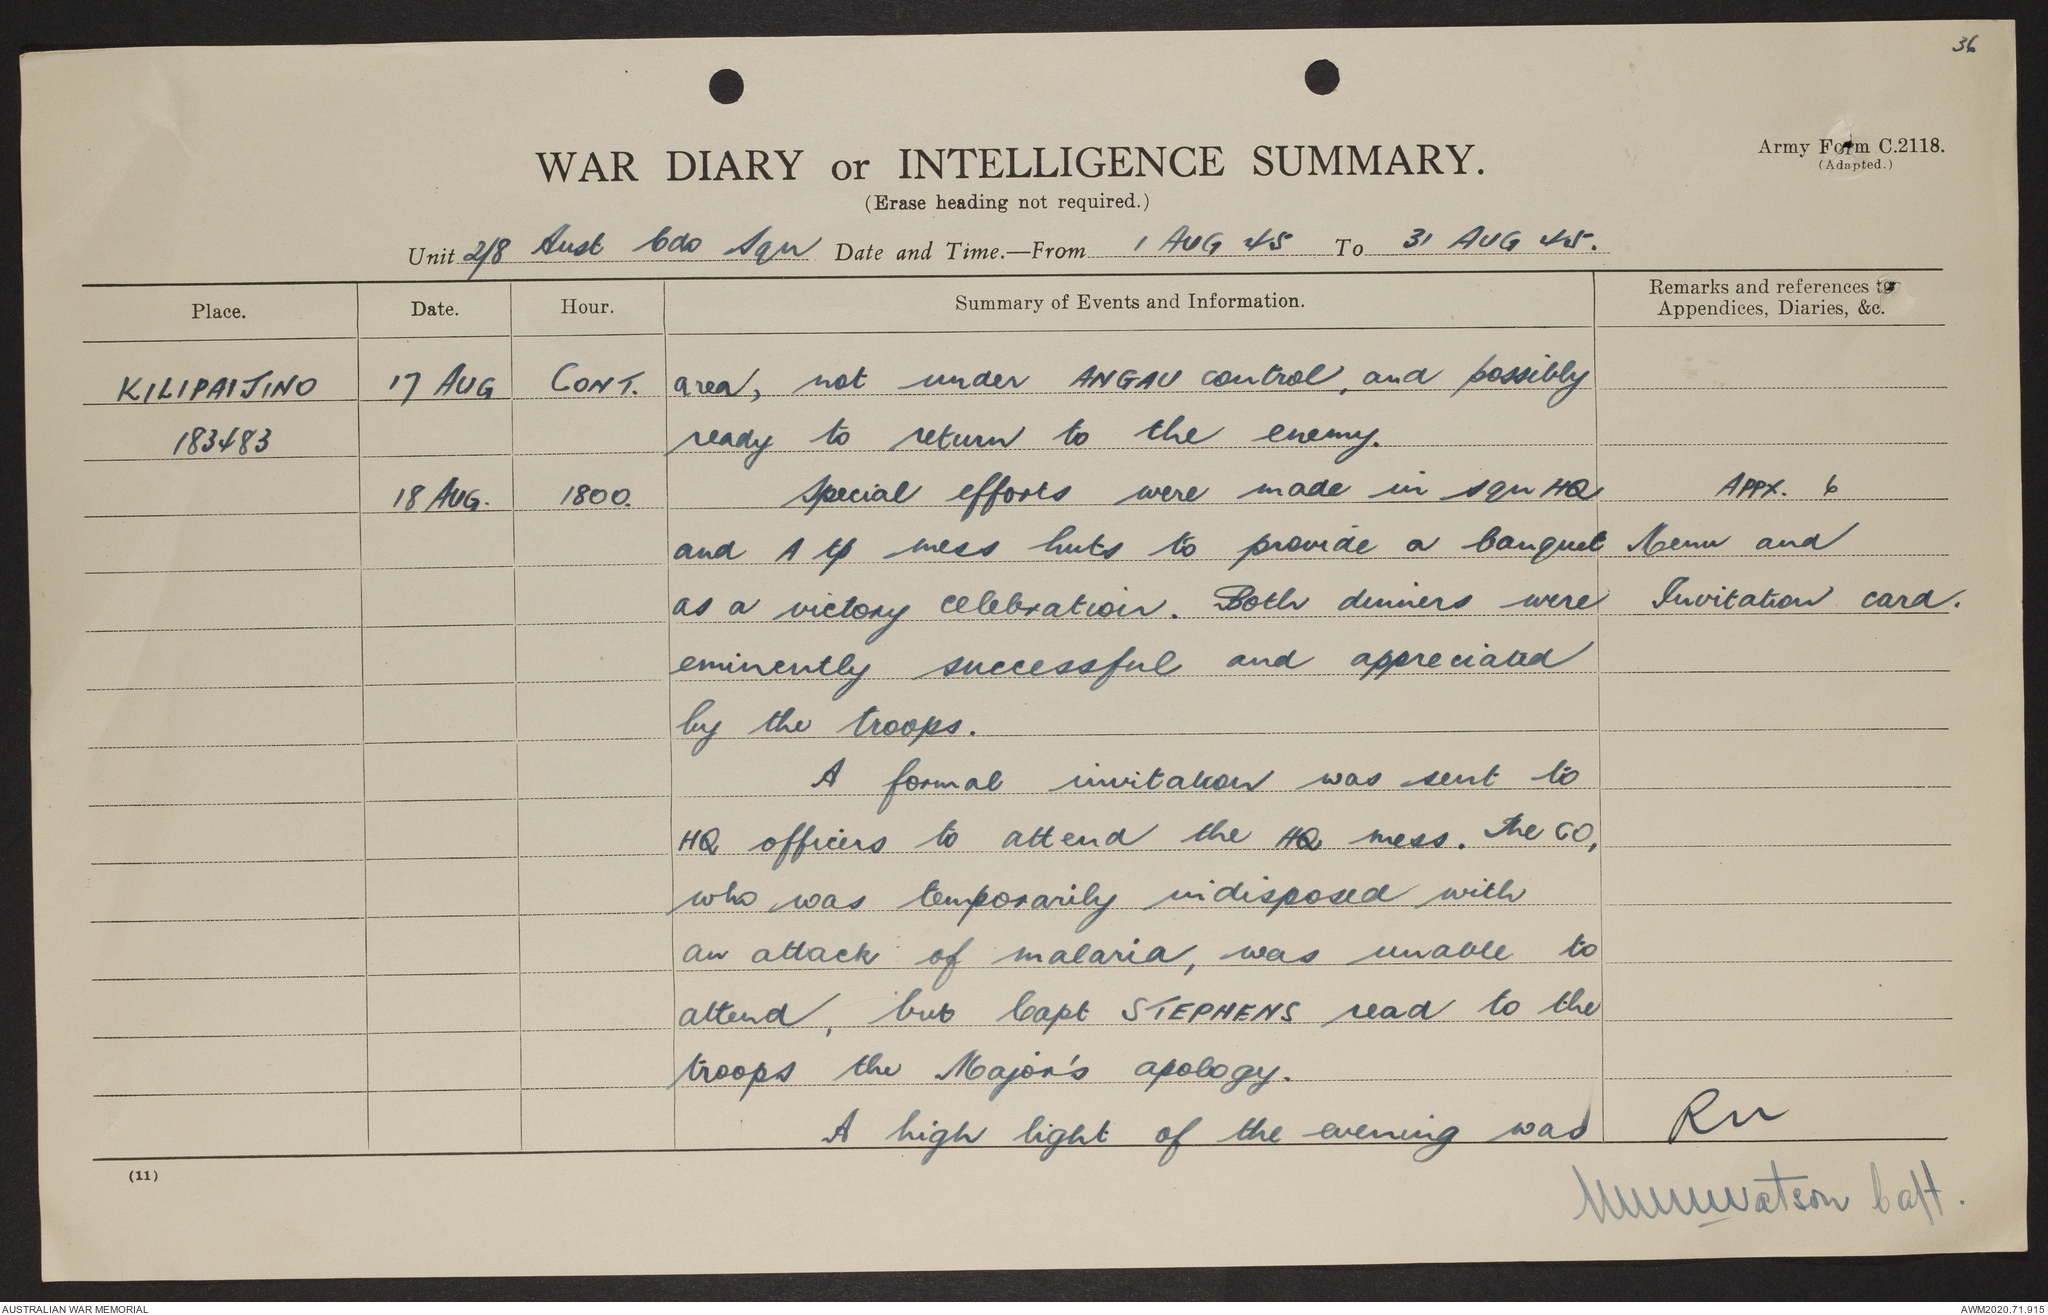 36
Army Form C.2118.
(Adapted.)
WAR DIARY or INTELLIGENCE SUMMARY.
(Erase heading not required.)
Unit 2/8 Aust Cdo Sqn Date and Time.—From 1 AUG 45 To 31 AUG 45.
Place. Date. Hour. Summary of Events and Information. Remarks and references to
Appendices, Diaries, &c.
KILIPAIJINO 17 AUG CONT. area, not under ANGAU control, and possibly
183483 ready to return to the enemy.
18 AUG. 1800. Special efforts were made in sqn HQ APPX. 6
and A tp mess huts to provide a banquet Menu and
as a victory celebration. Both dinners were Invitation card.
eminently successful and appreciated
by the troops.
A formal invitation was sent to
HQ officers to attend the HQ mess. The CO,
who was temporarily indisposed with
an attack of malaria, was unable to
attend, but Capt STEPHENS read to the
troops the Major's apology.
A high light of the evening was
(11)
Watson Capt.
AUSTRALIAN WAR MEMORIAL
AWM2020.71.915